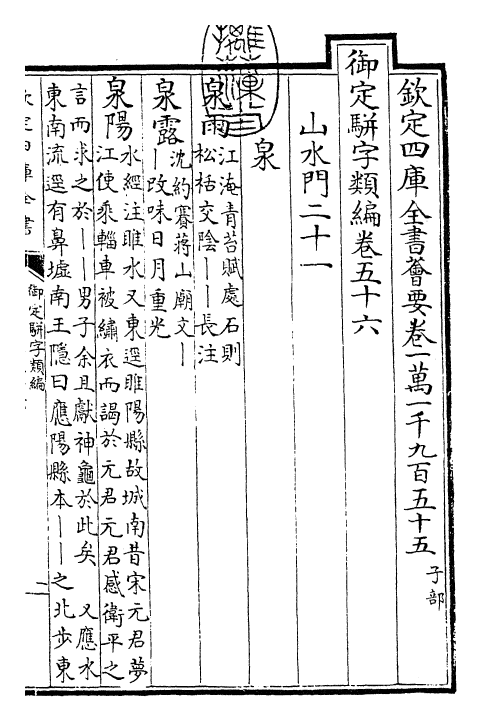 欽定四庫全書薈要卷一萬一千九百五十五 子部
御定駢字類編卷五十六
山水門二十一
泉
泉雨 江淹青苔賦處石則
松栝交陰丨丨長注
泉露 沈約賽蔣山廟文丨
丨改味日月重光
泉陽 水經注睢水又東逕睢陽縣故城南昔宋元君夢
江使乘輜車被繡衣而謁於元君元君感衛平之
言而求之於丨丨男子余且獻神龜於此矣 又應水
東南流逕有鼻墟南王隱曰應陽縣本丨丨之北步東
定四庫全書
御定駢字類編